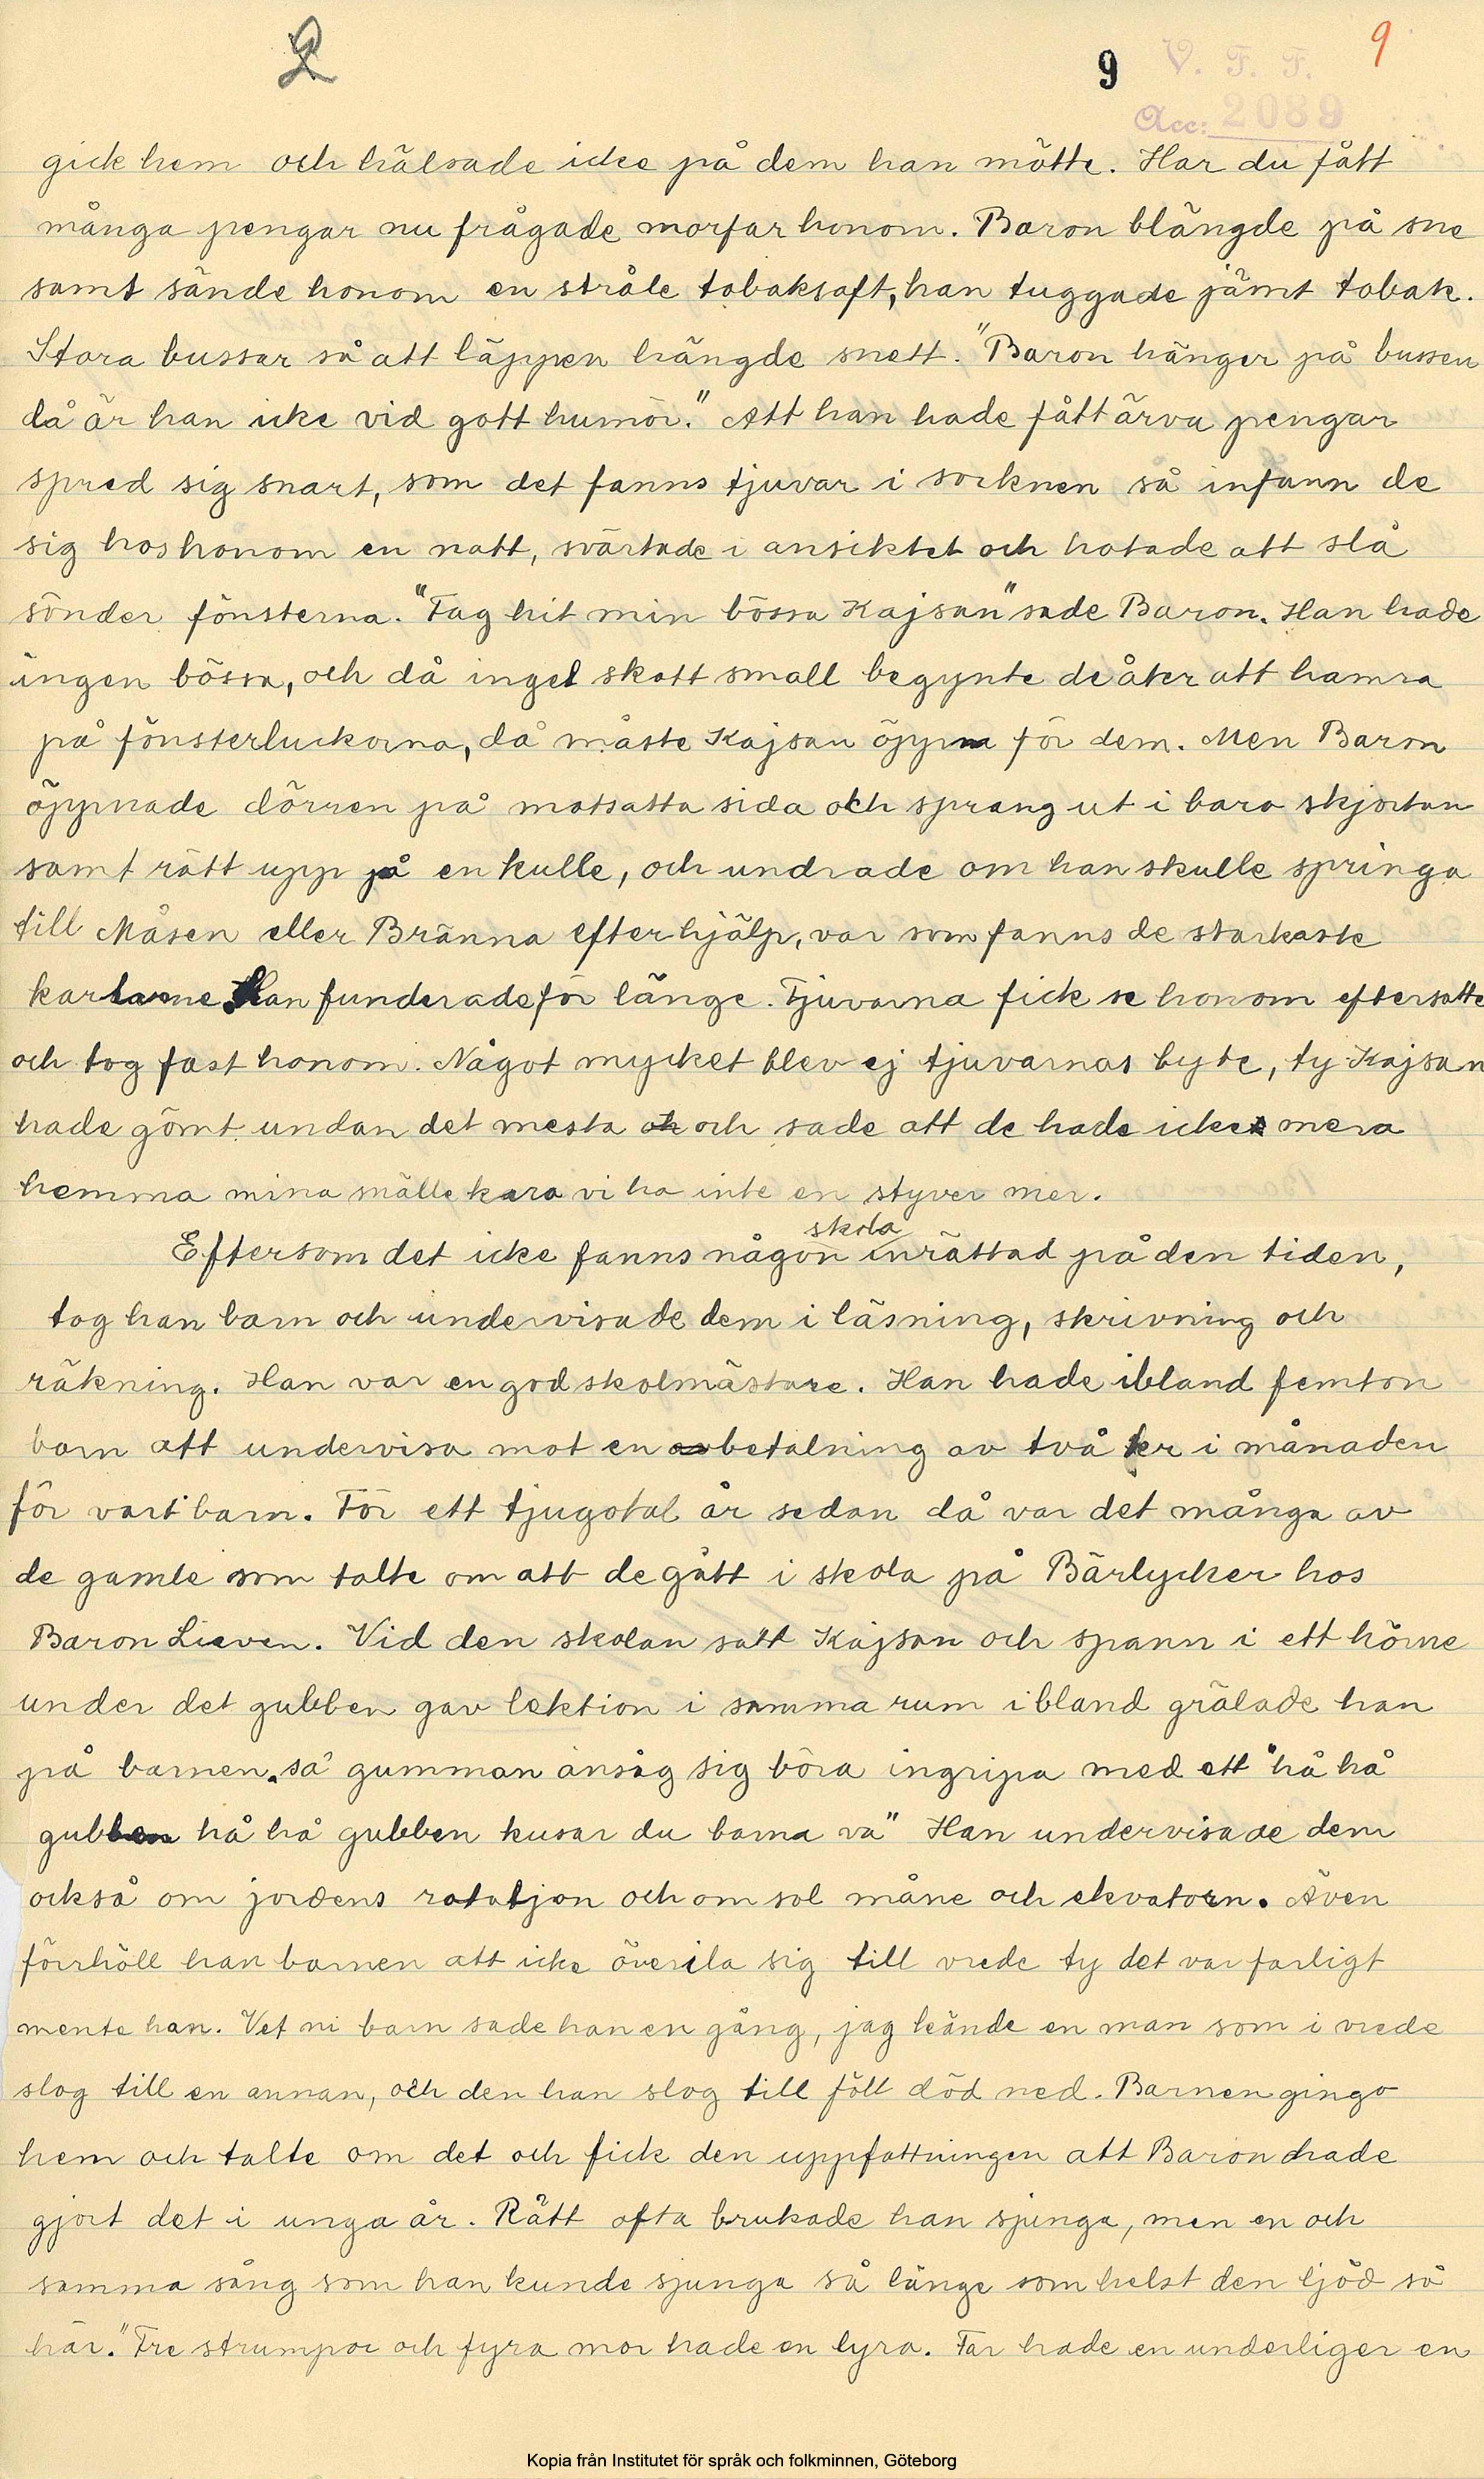 2
9 V. F. F. 9
Acc: 2089
gick hem och hälsade icke på dem han mötte. Har du fått
många pengar nu frågade morfar honom. Baron blängde på sne
samt sände honom en stråle tobaksaft, han tuggade jämt tobak.
Stora bussar så att läppen hängde snett. "Baron hänger på bussen
då är han icke vid gott humör." Att han hade fått ärva pengar
spred sig snart, som det fanns tjuvar i socknen så infann de
sig hos honom en natt, svärtade i ansiktet och hotade att slå
sönder fönsterna. "Tag hit min bössa Kajsan" sade Baron. Han hade
ingen bössa, och då inget skott small begynte de åter att hamra
på fönsterluckorna, då måste Kajsan öppna för dem. Men Baron
öppnade dörren på motsatta sida och sprang ut i bara skjortan
samt rätt upp på en kulle, och undrade om han skulle springa
till Måsen eller Bränna efter hjälp, var som fanns de starkaste
karlarne. Han funderade för länge. Tjuvarna fick se honom eftersatte
och tog fast honom. Något mycket blev ej tjuvarnas byte, ty Kajsan
hade gömt undan det mesta och sade att de hade icke mera
hemma mina snälle kara vi ha inte en styver mer.
skola
Eftersom det icke fanns någon inrättad på den tiden,
tog han barn och undervisade dem i läsning, skrivning och
räkning. Han var en god skolmästare. Han hade ibland femton
barn att undervisa mot en betalning av två kr i månaden
för vart barn. För ett tjugotal år sedan då var det många av
de gamle som talte om att de gått i skola på Bärlycker hos
Baron Lieven. Vid den skolan satt Kajsan och spann i ett hörne
under det gubben gav lektion i samma rum ibland grälade han
på barnen, så gumman ansåg sig böra ingripa med ett "hå hå
gubben hå hå gubben kusar du barna va" Han undervisade dem
också om jordens rotatjon och om sol måne och ekvatorn. Även
förehöll han barnen att icke överila sig till vrede ty det var farligt
mente han. Vet ni barn sade han en gång, jag kände en man som i vrede
slog till en annan, och den han slog till föll död ned. Barnen gingo
hem och talte om det och fick den uppfattningen att Baron hade
gjort det i unga år. Rätt ofta brukade han sjunga, men en och
samma sång som han kunde sjunga så länge som helst den ljöd så
här. "Tre strumpor och fyra mor hade en lyra. Far hade en underliger en
Kopia från Institutet för språk och folkminnen, Göteborg